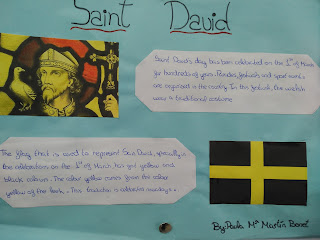 Saint David
Saint David's day has been celebrated on the 1st of March
for hundreds of years. Parades, festivals and sport events
are organised in the country. In this festival, the welsh
wear a traditional costume.
The flag that is used to represent Saint David, specially in
the celebrations on the 1st of March has got yellow and
black colours. The colour yellow comes from the colour
yellow of the leek. This tradition is celebrated nowadays.
By Paula Mª Martín